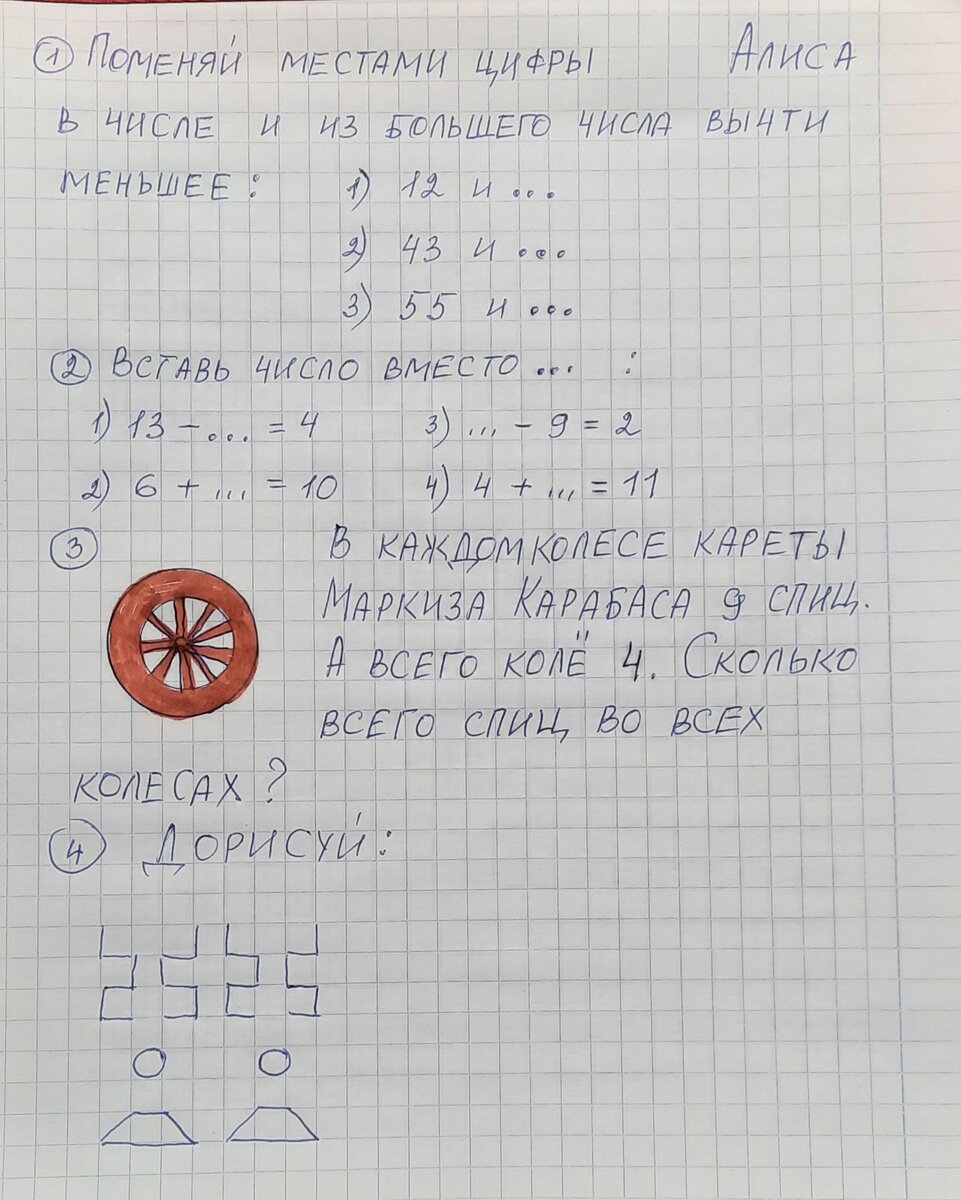 ① Поменяй местами цифры Алиса
в числе и из большего числа вычти
меньшее: 1) 12 и ...
2) 43 и ...
3) 55 и ...
② Вставь число вместо ... :
1) 13 - ... = 4 3) ... - 9 = 2
2) 6 + ... = 10 4) 4 + ... = 11
③ В каждом колесе кареты
Маркиза Карабаса 9 спиц.
А всего колё 4. Сколько
всего спиц во всех
колесах?
④ Дорисуй: